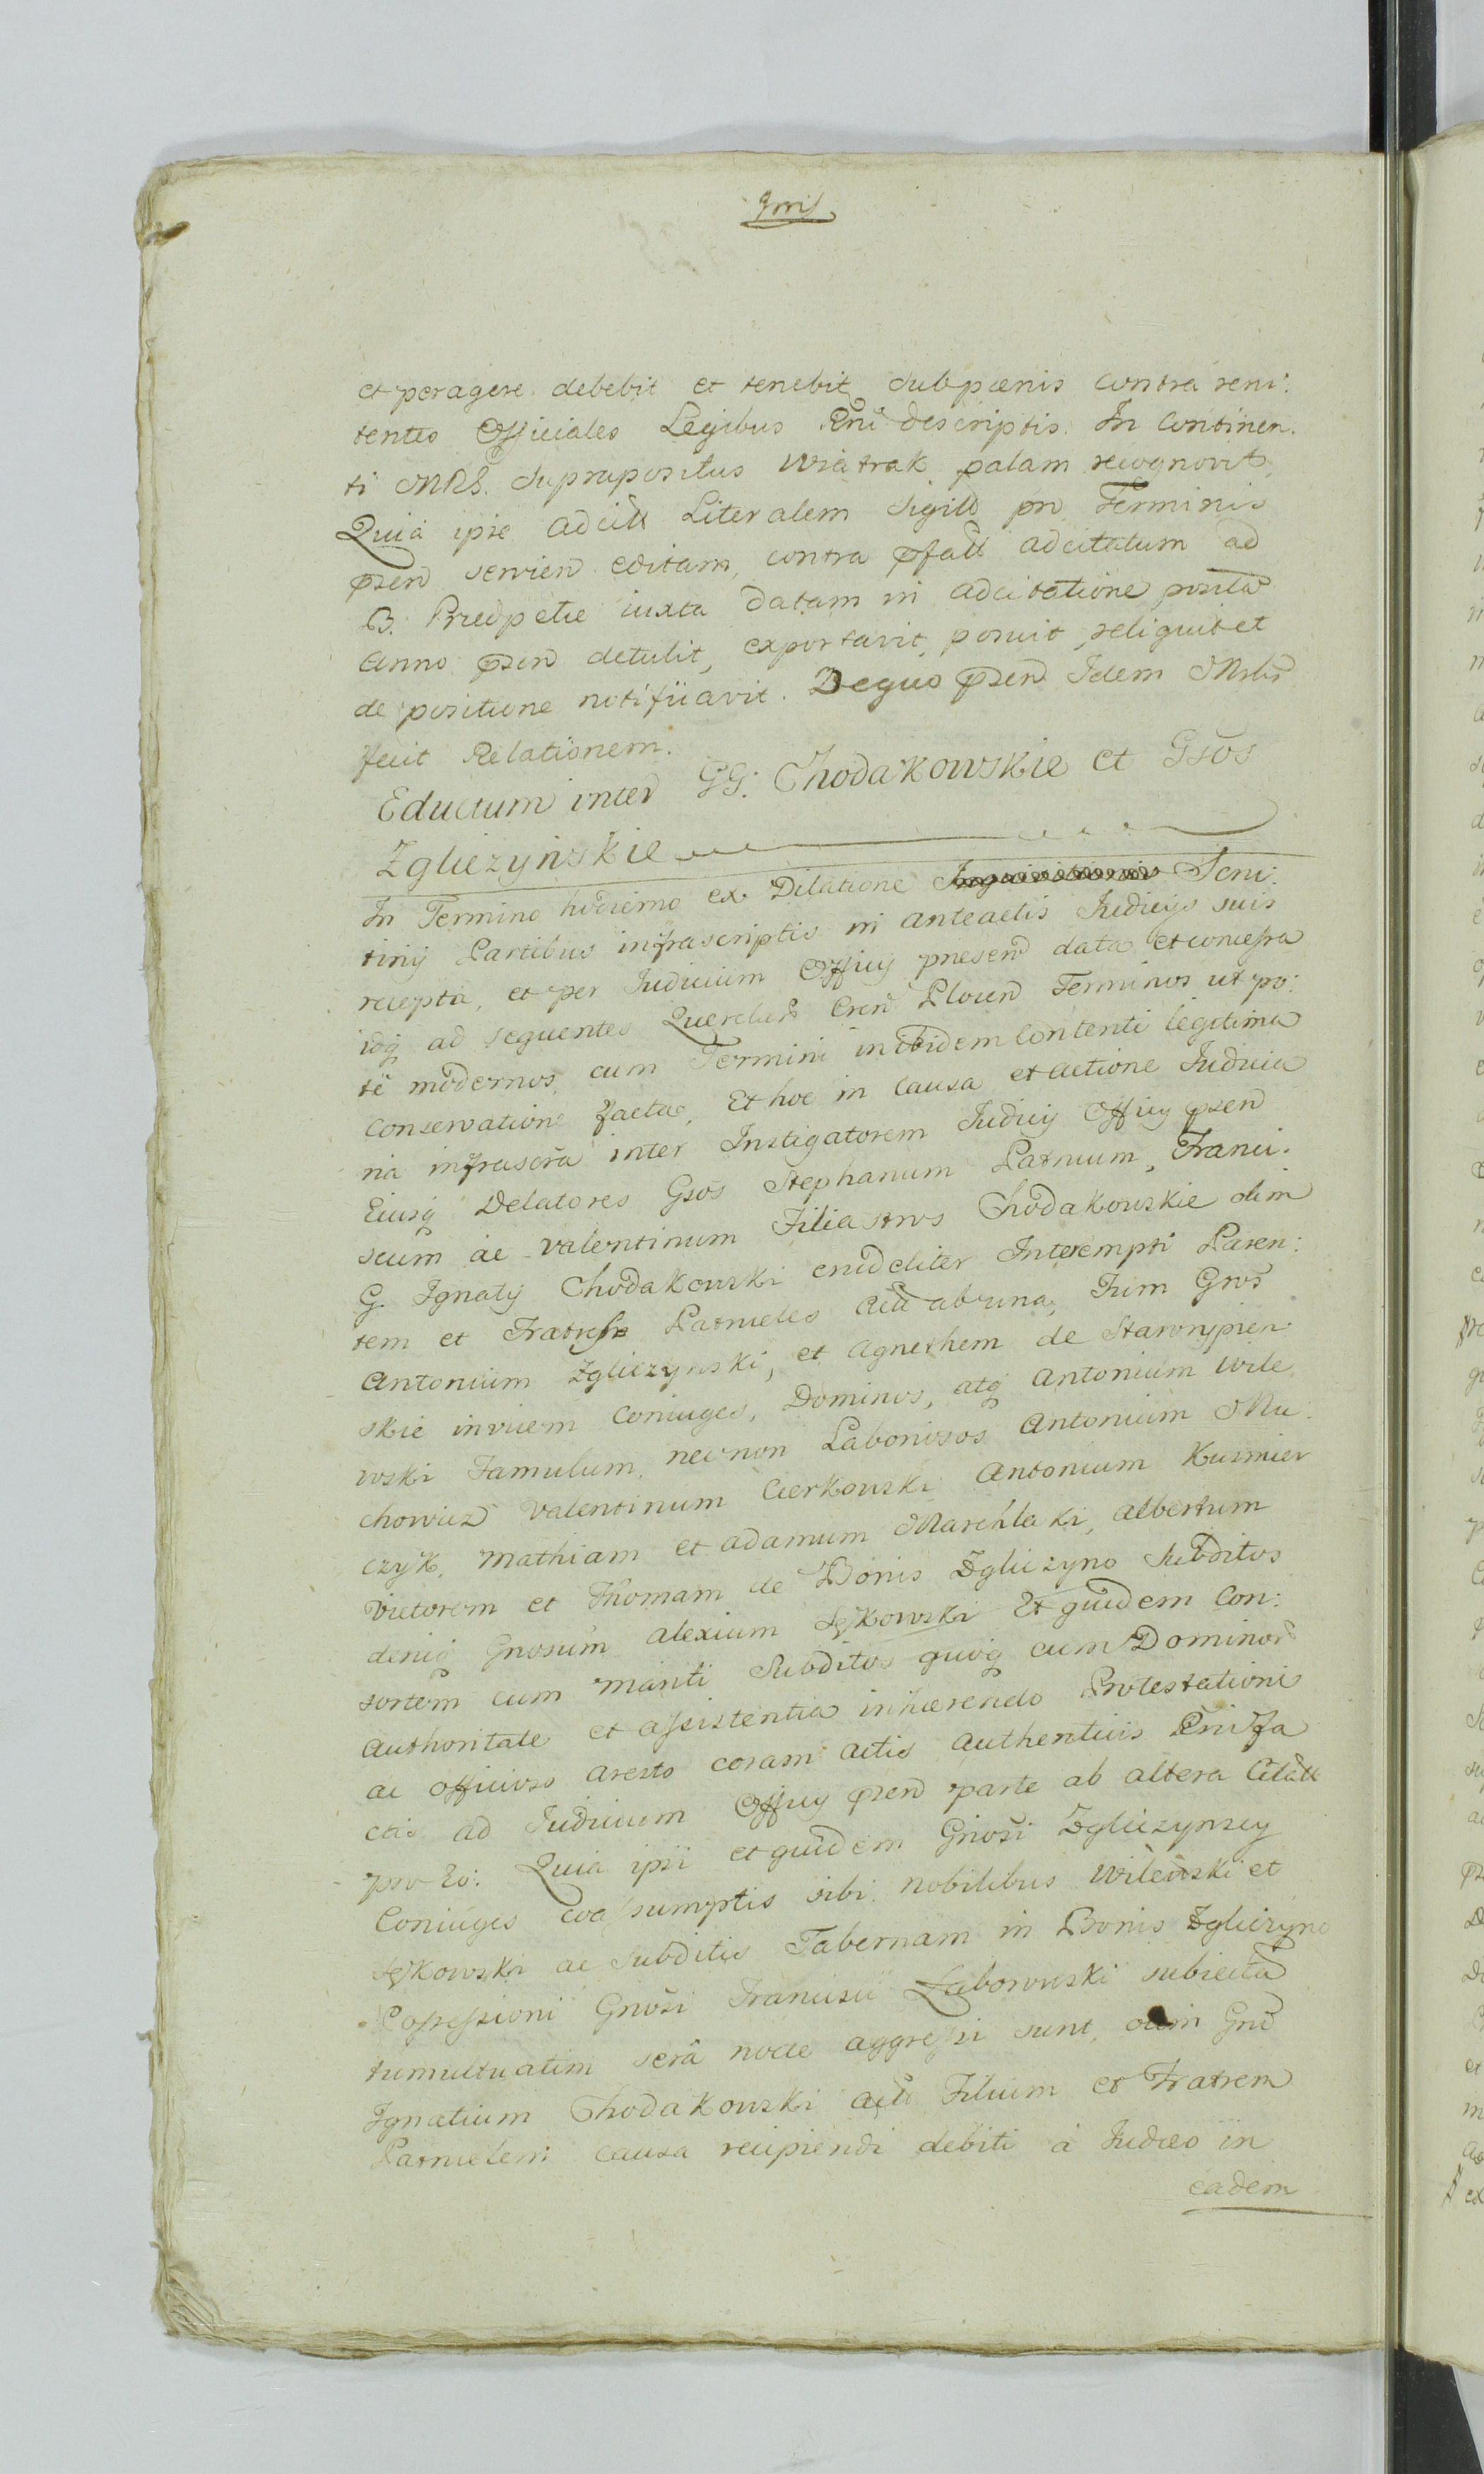 et peragere debebit et tenebitq subpœnis contra reni:
tentes Officiales Legibus Rni descriptis. In Continen:
ti MRS. Suprapositus Wiatrak palam recognovit
Quia ipse adcitt Literalem Sigill pro Terminis
pzen servien editam, contra pfatt adcitatum ad
B. Przedpełcie iuxta datam in adcitatione posita
Anno pzen detulit, exportavit, posuit, reliquit et
de positione notificavit. Dequo pzen Idem Mrlis
fecit Relationem.
Eductum inter GG. Chodakowskie et Gsos
Zgliczyńskie
In Termino hodierno ex Dilatione Scru:
tinij Partibus infrascriptis in anteactis Judicijs suis
recepta, et per Judicium Officij presen data et concessa
idq ad sequentes Querelar Cren Plocen Terminos ut po:
te modernos, cum Termini inibidem Contenti legitima
conservatione facta, Et hoc in Causa et actione Judicia
ria infrascra inter Instigatorem Judicij Officij pzen
Eiusq Delatores Gsos Stephanum Patruum, Franci:
scum ac Valentinum Filiastros Chodakowskie olim
G. Ignatij Chodakowski crudeliter Interempti Paren:
tem et Fratres Patrueles actt ab una, Tum Gros
Antonium Zgliczynski, et Agnethem de Staronypien
skie invicem Coniuges, Dominos, atq Antonium Wile
wski Famulum, necnon Laboriosos Antonium Mu:
chowicz Valentinum Cierkowski Antonium Kusmier
czyk, Mathiam et Adamum Marchlaki, Albertum
Victorem et Thomam de Bonis Zgliczyno Subditos
deniq Gnosum Alexium Sękowski Et quidem Con:
sortem cum mariti Subditos quoq cum Dominor
Authoritate et assistentia inhærendo Protestationi
ac officioso Aresto coram Actis Authenticis Rni fa
ctis ad Judicium Officij pzen parte ab altera Citatt
pro Eo: Quia ipsi et quidem Gnosi Zgliczynscy
Coniuges coassumptis sibi nobilibus Wilewski et
Sękowski ac Subditis Tabernam in Bonis Zgliczyno
Possessioni Gnosi Francisci Zaborowski subiecta
tumultuatim serâ nocte aggressi sunt, olim Gnu
Ignatium Chodakowski actt Filium et Fratrem
Patruelem causa recipiendi debiti à Judæo in
eadem